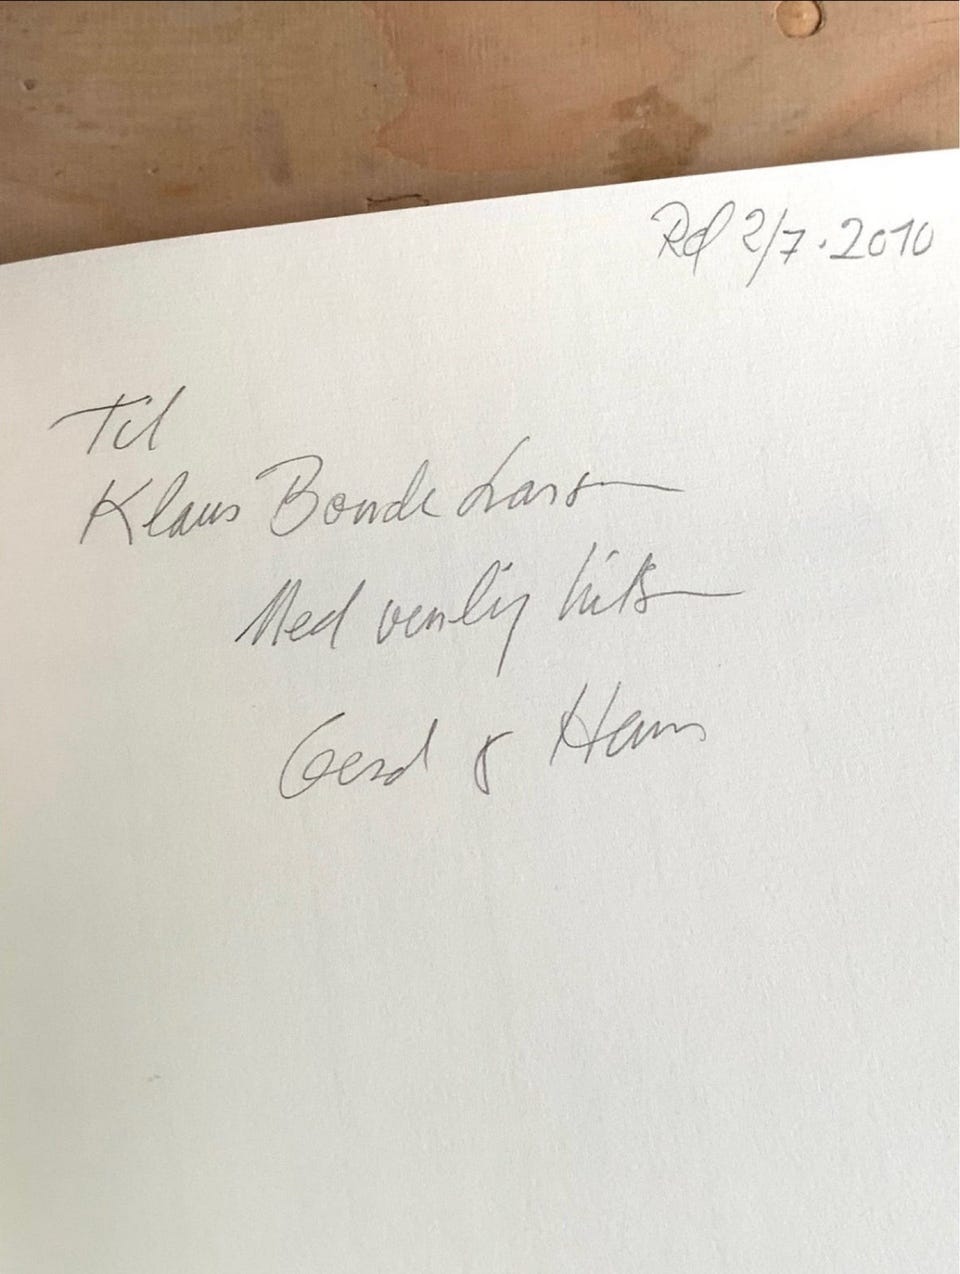 Rd 2/7.2010
Til
Klaus Bonde Larsen
Med venlig hilsen
Gerd & Hans